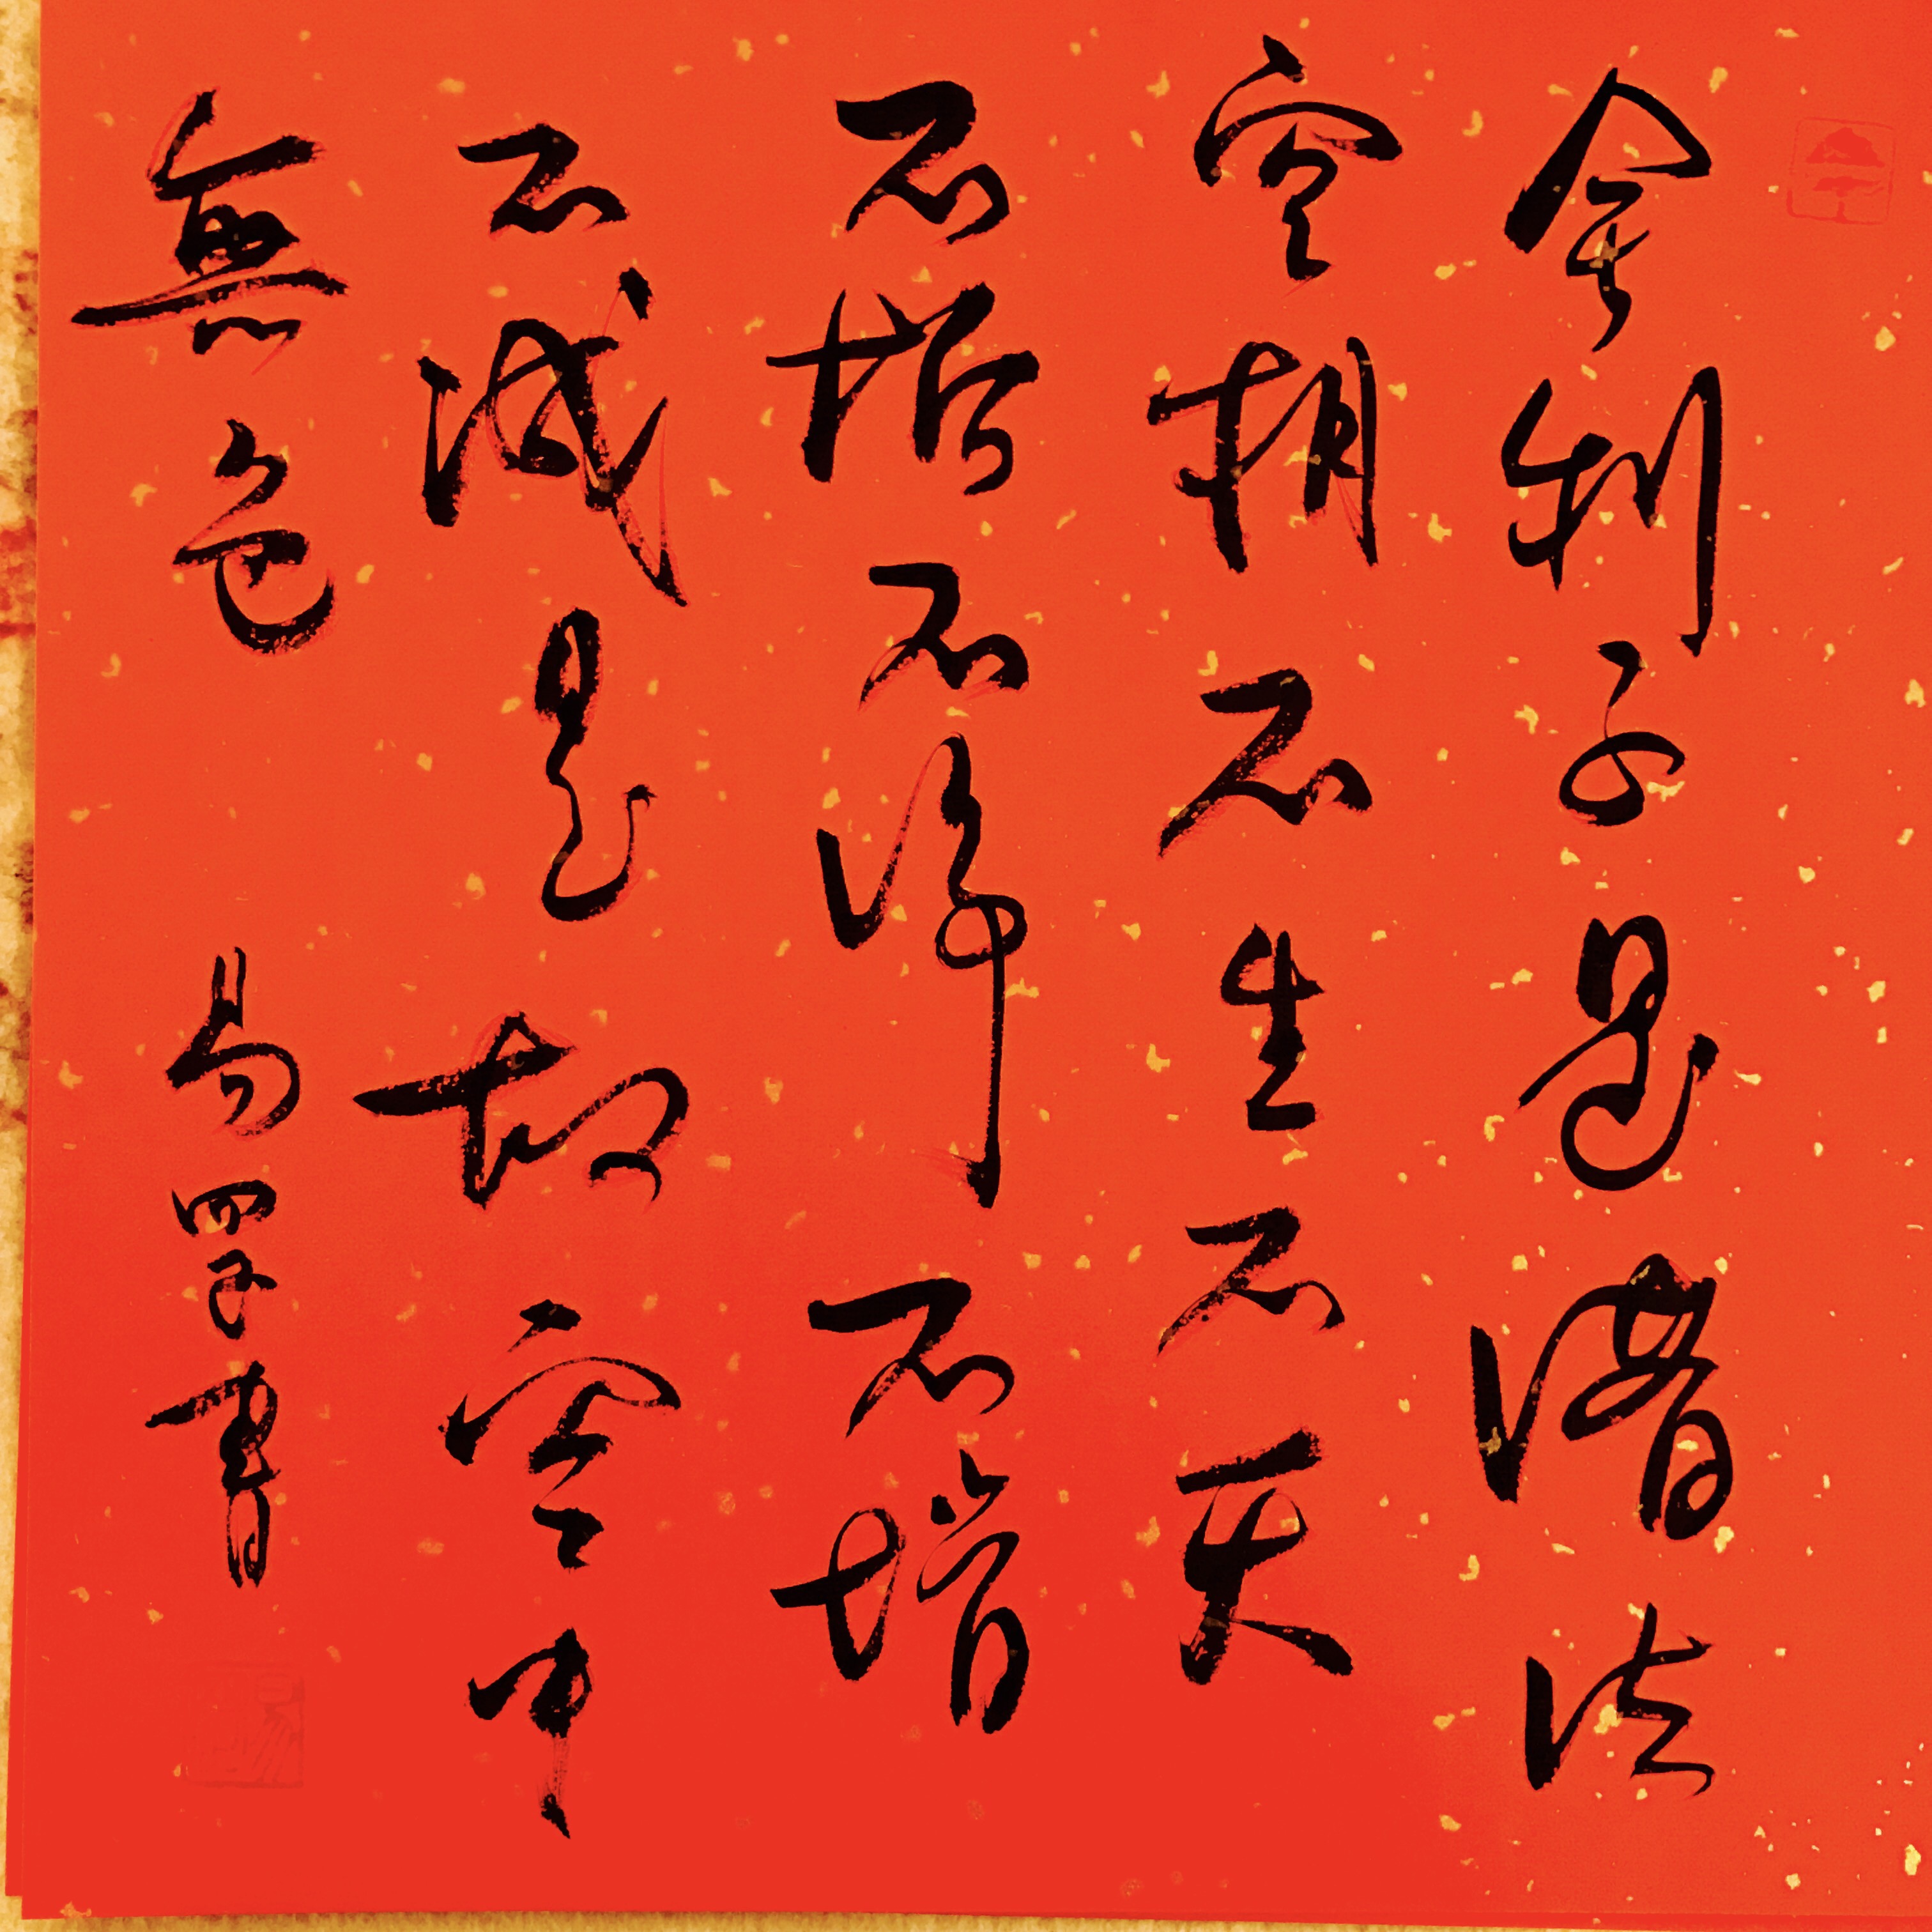 舍利子是諸法
空相不生不灭
不垢不淨不增
不減是故空中
無色
易四子書